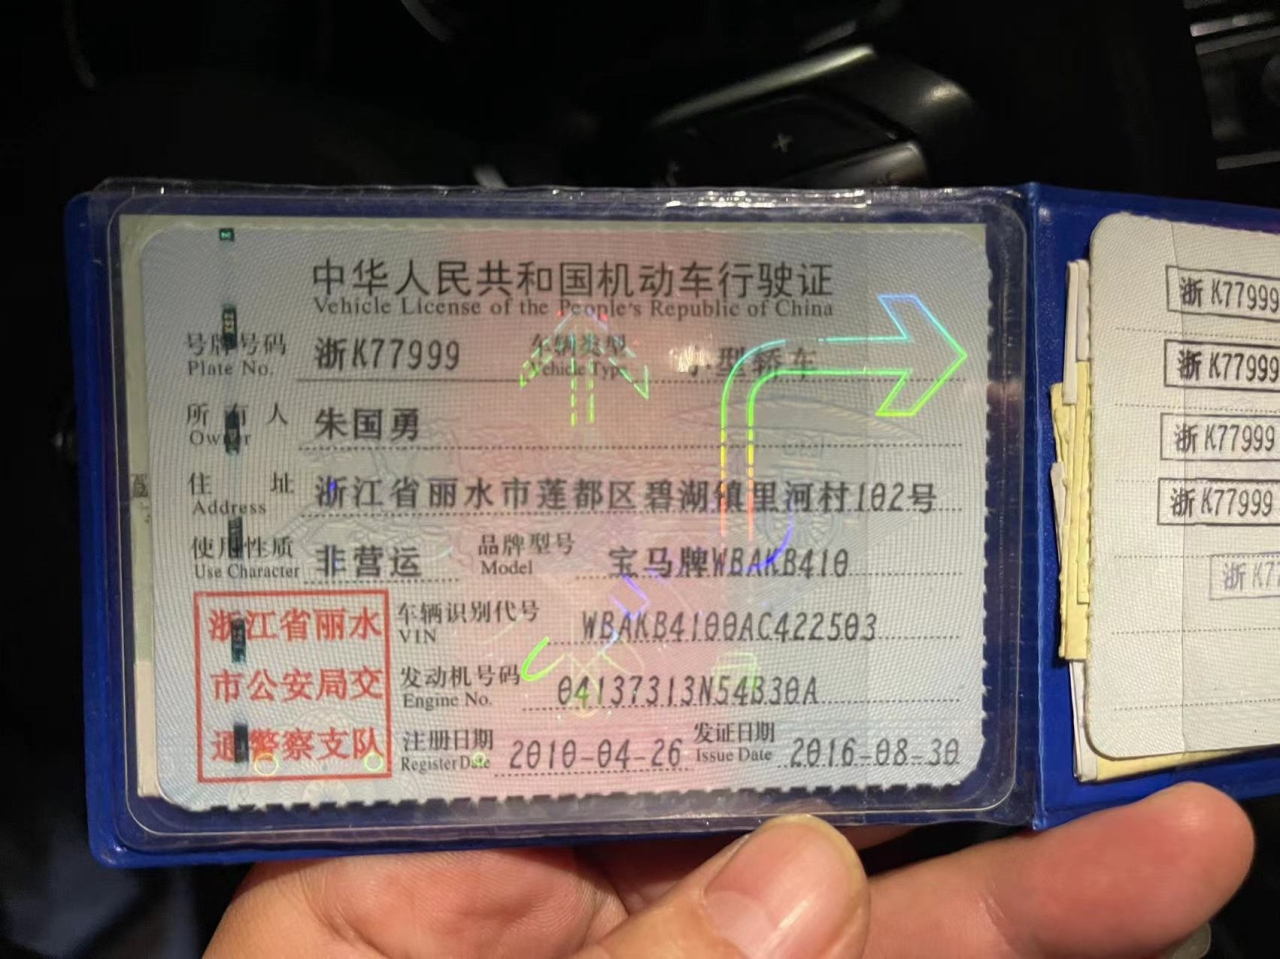 中华人民共和国机动车行驶证
Vehicle License of the People's Republic of China
号牌号码 浙K77999 车辆类型 小型轿车
Plate No. Vehicle Type
所有人 朱国勇
Owner
住址 浙江省丽水市莲都区碧湖镇里河村102号
Address
使用性质 非营运 品牌型号 宝马牌WBAKB410
Use Character Model
浙江省丽水
市公安局交
通警察支队
车辆识别代号 WBAKB4100AC422503
VIN
发动机号码 04137313N54B30A
Engine No.
注册日期 2010-04-26 发证日期 2016-08-30
Register Date Issue Date
浙K77999
浙K77999
浙K77999
浙K77999
浙K7